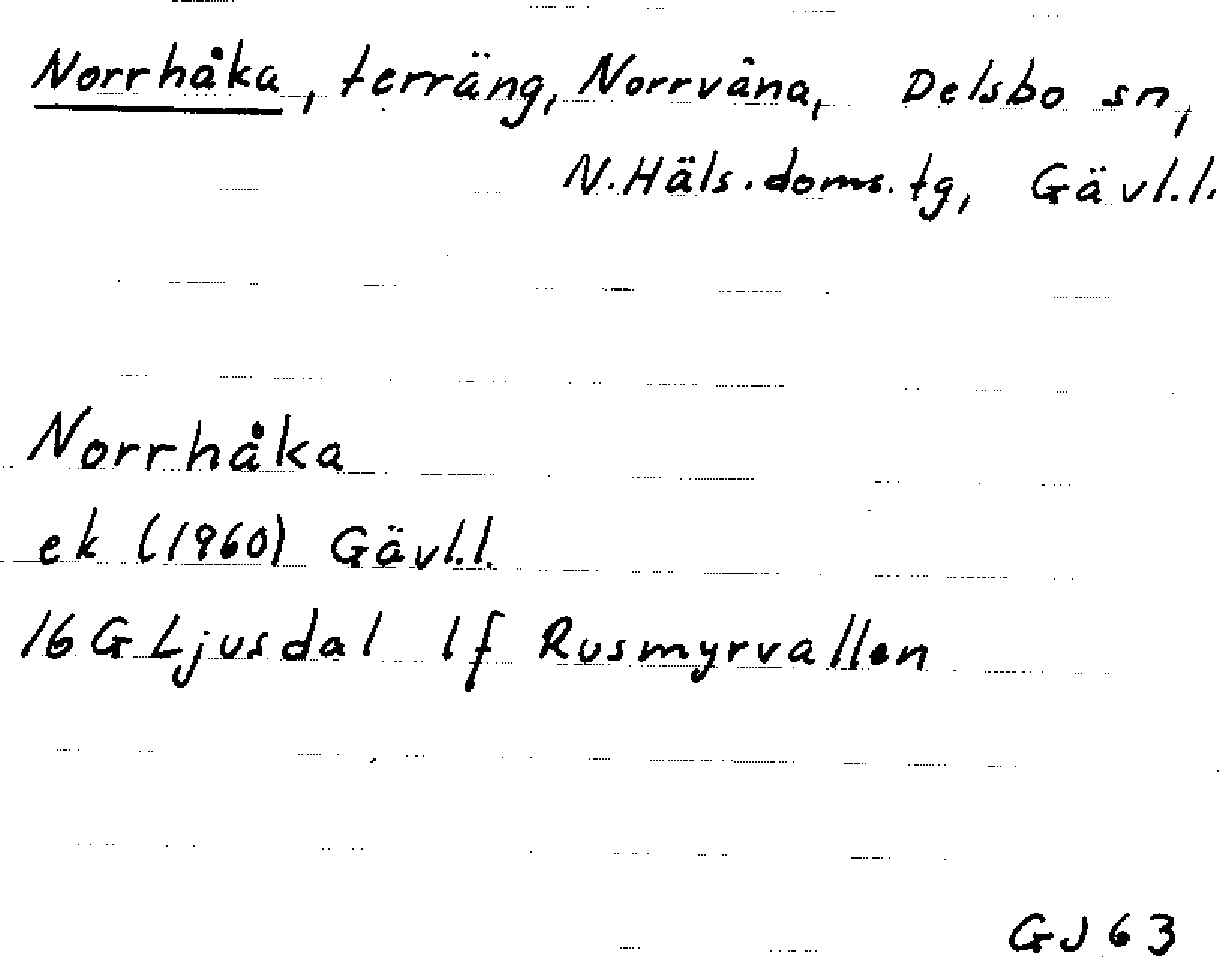 Norrhåka, terräng, Norrvåna, Delsbo sn,
N.Häls.doms.tg, Gävl.l.
Norrhåka
ek (1960) Gävl.l.
16G Ljusdal 1f Rusmyrvallen
GJ 63